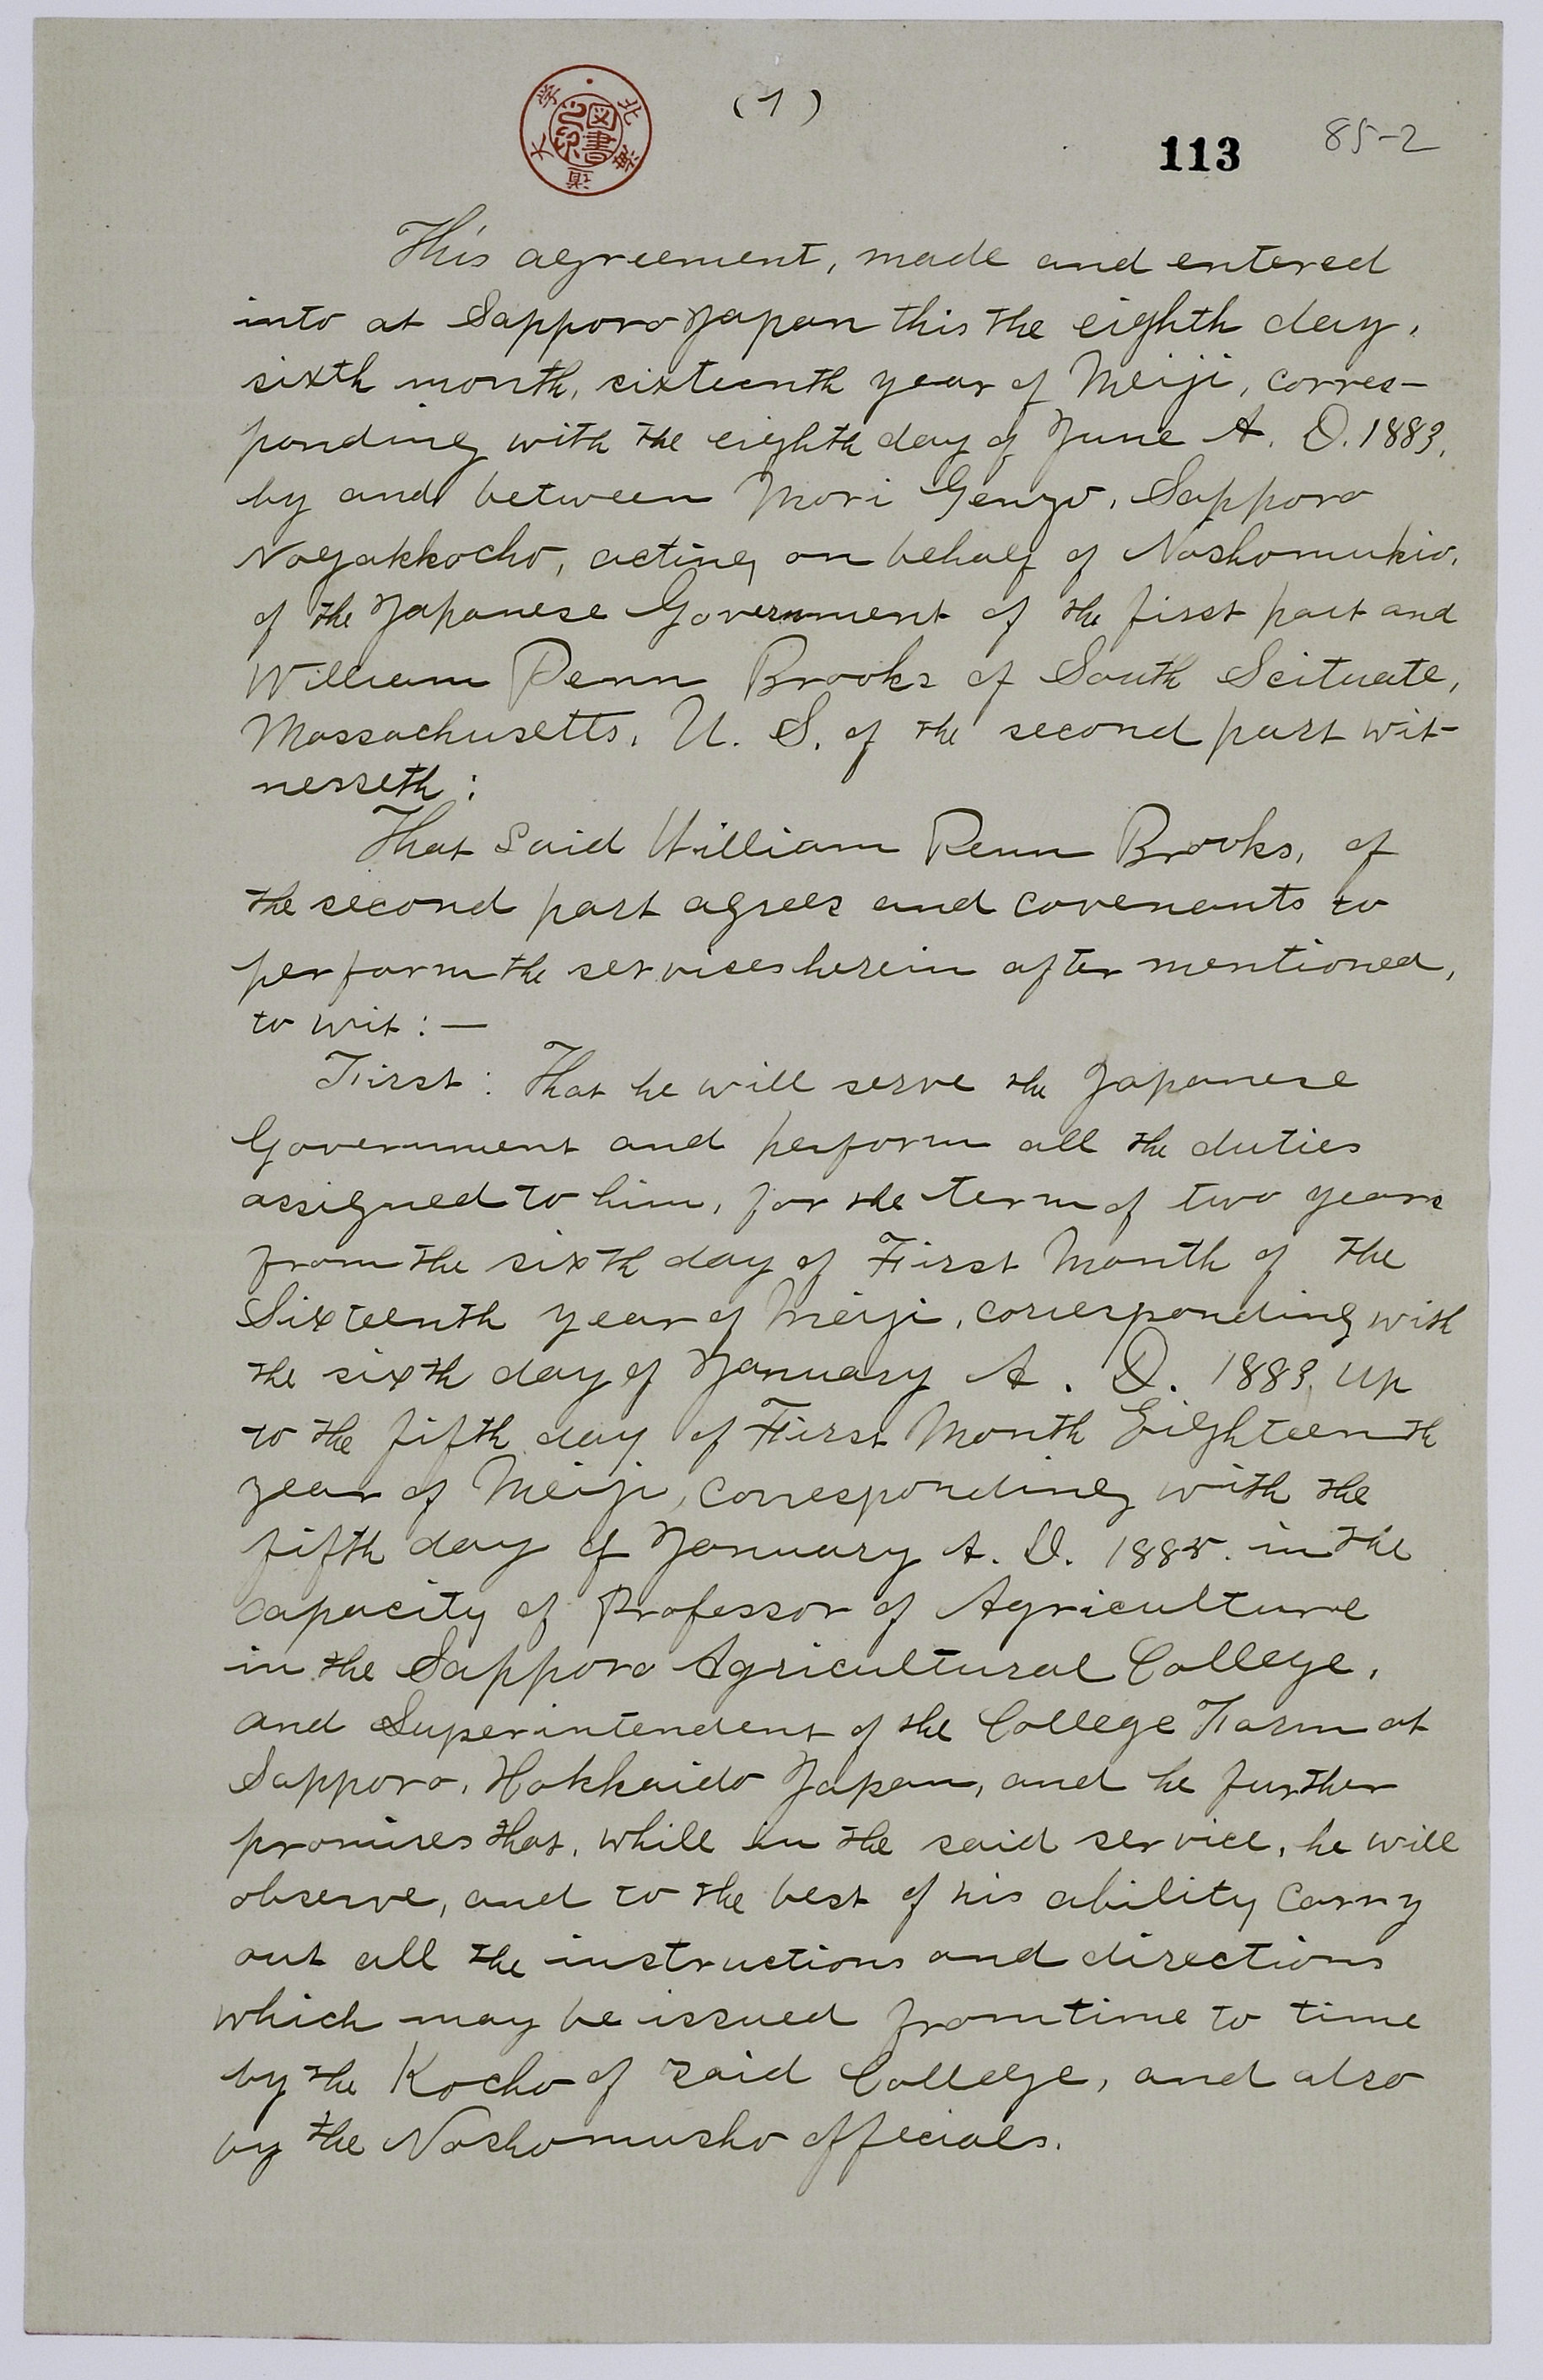 北海道大学
図書之印
(1)
113
85-2
This agreement, made and entered
into at Sapporo Japan this the eighth day,
sixth month, sixteenth year of Meiji, corres-
ponding with the eighth day of June A. D. 1883,
by and between Mori Genzo, Sapporo
Nogakkocho, acting on behalf of Noshomukio,
of the Japanese Government of the first part and
William Penn Brooks of South Scituate,
Massachusetts, U. S. of the second part wit-
nesseth:
That said William Penn Brooks, of
the second part agrees and covenants to
perform the services herein after mentioned,
to wit: —
First: That he will serve the Japanese
Government and perform all the duties
assigned to him, for the term of two years
from the sixth day of First Month of the
Sixteenth year of Meiji, corresponding with
the sixth day of January A. D. 1883, up
to the fifth day of First Month Eighteenth
year of Meiji, corresponding with the
fifth day of January A. D. 1885. in the
capacity of Professor of Agriculture
in the Sapporo Agricultural College,
and Superintendent of the College Farm at
Sapporo, Hokkaido Japan, and he further
promises that, while in the said service, he will
observe, and to the best of his ability carry
out all the instructions and directions
which may be issued from time to time
by the Kocho of said College, and also
by the Noshomusho officials.